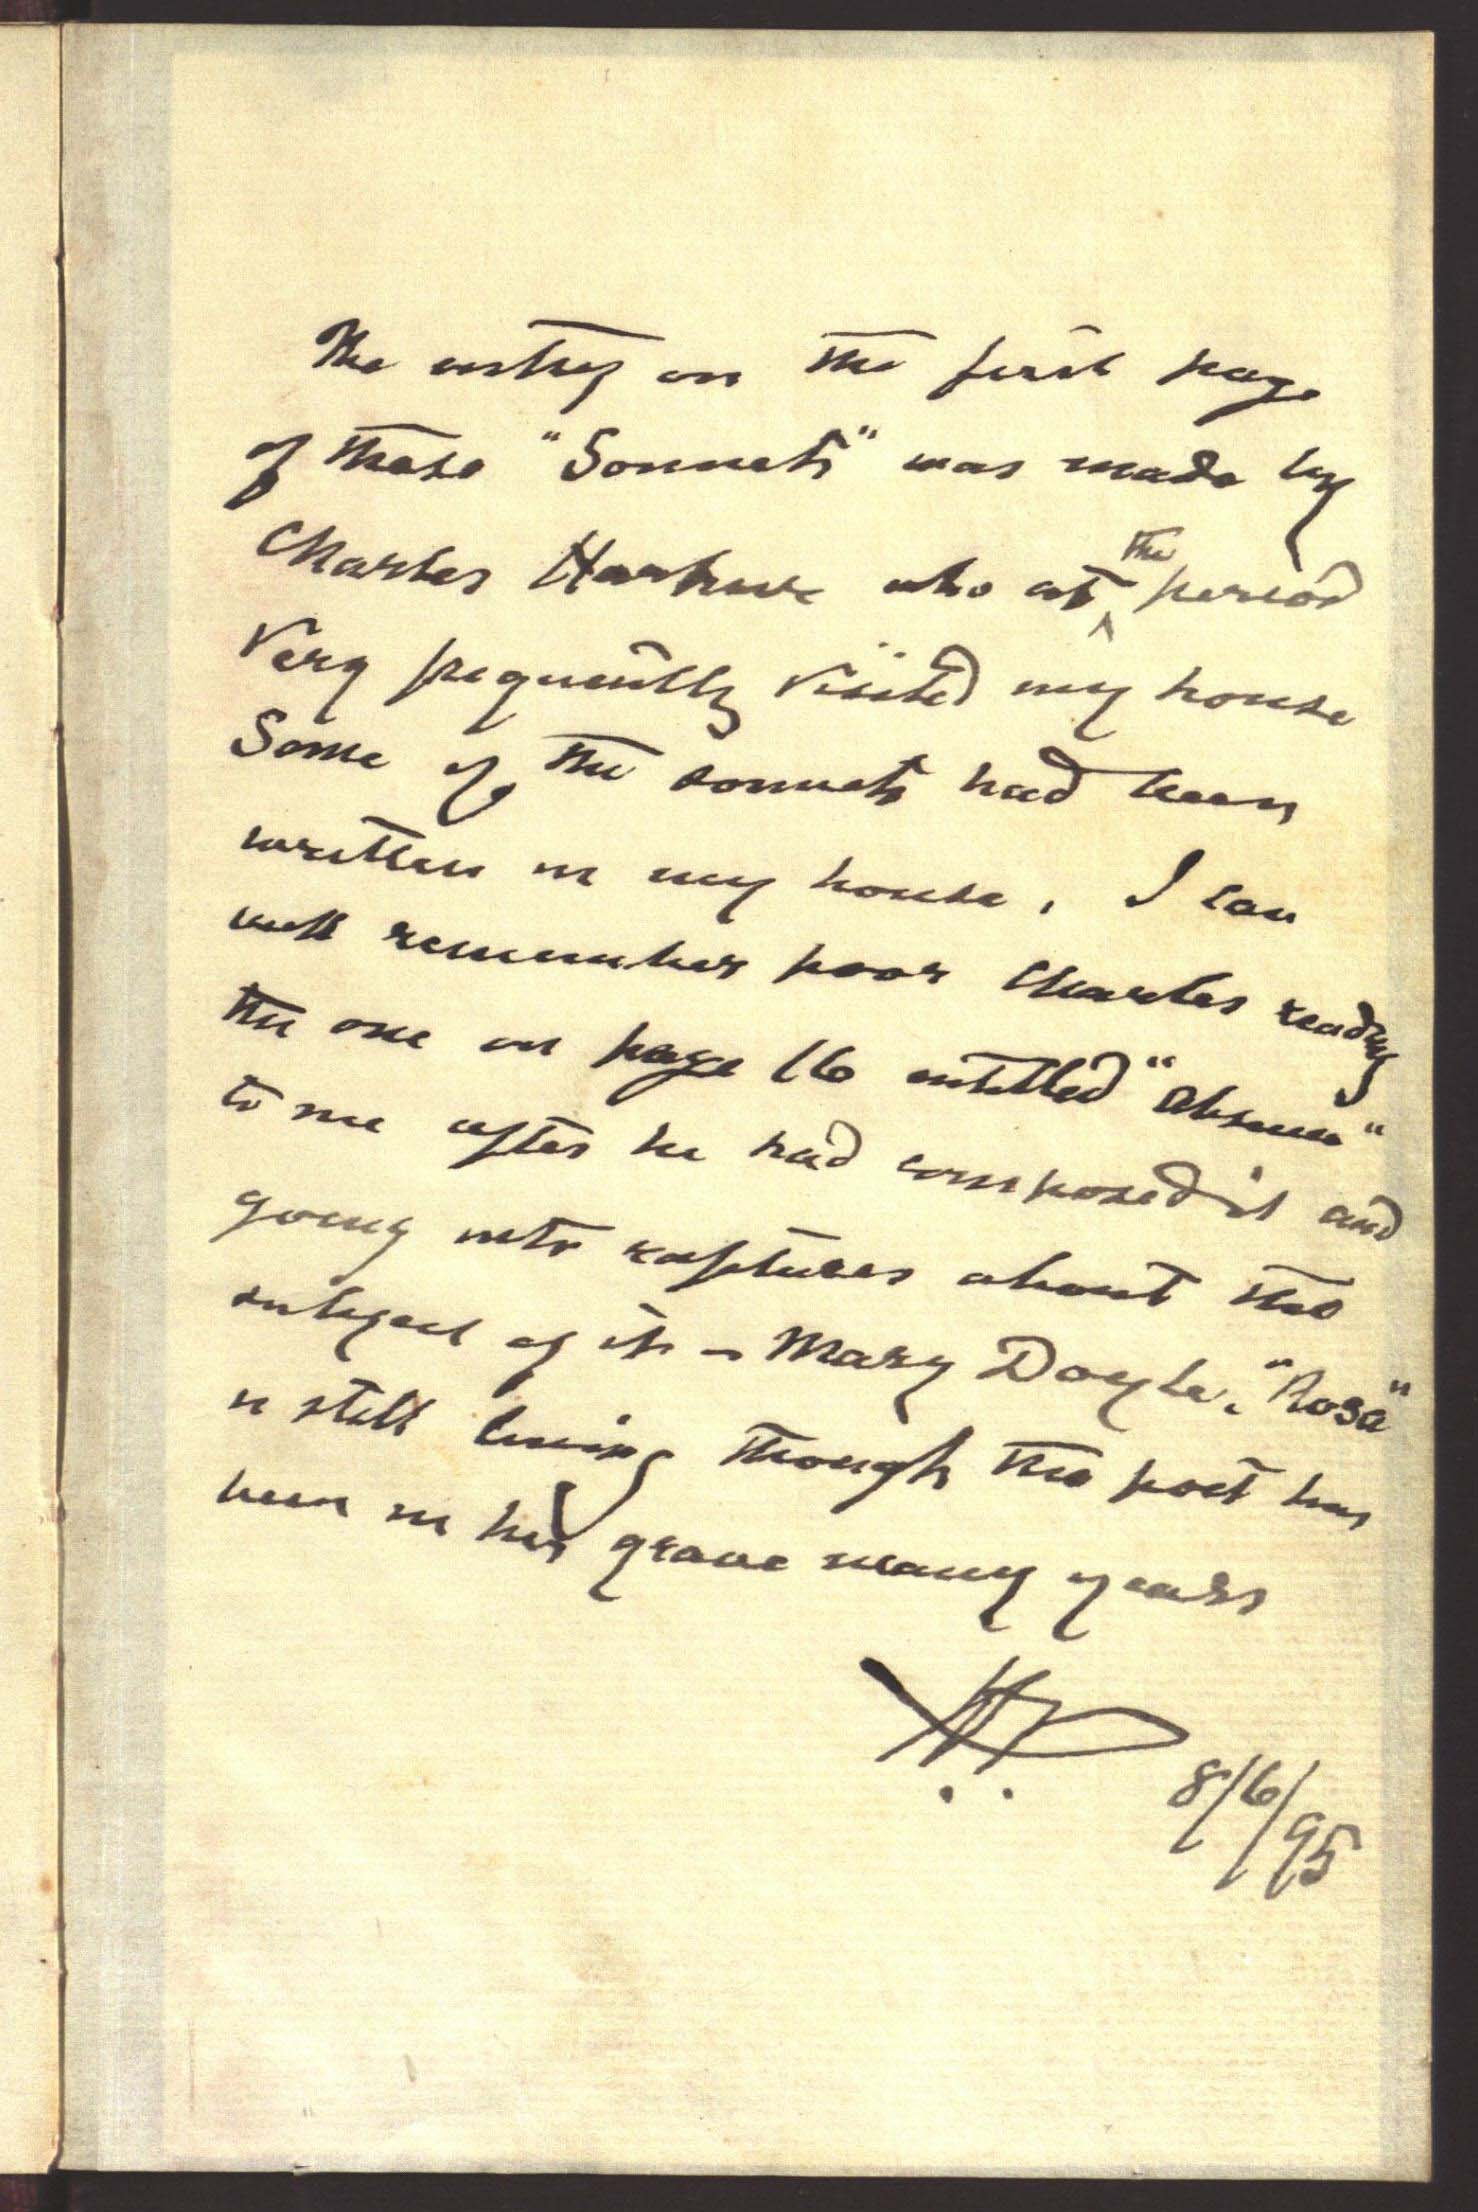 The entry on the first page
of these "Sonnets" was made by
Charles Harpur who at the period
very frequently visited my house
Some of the sonnets had been
written in my house. I can
well remember poor Charles reading
the one on page 16 entitled "Absence"
to me after he had composed it and
going into raptures about the
subject of it - Mary Doyle. "Rosa"
is still living though the poet has
been in his grave many years
8/6/95